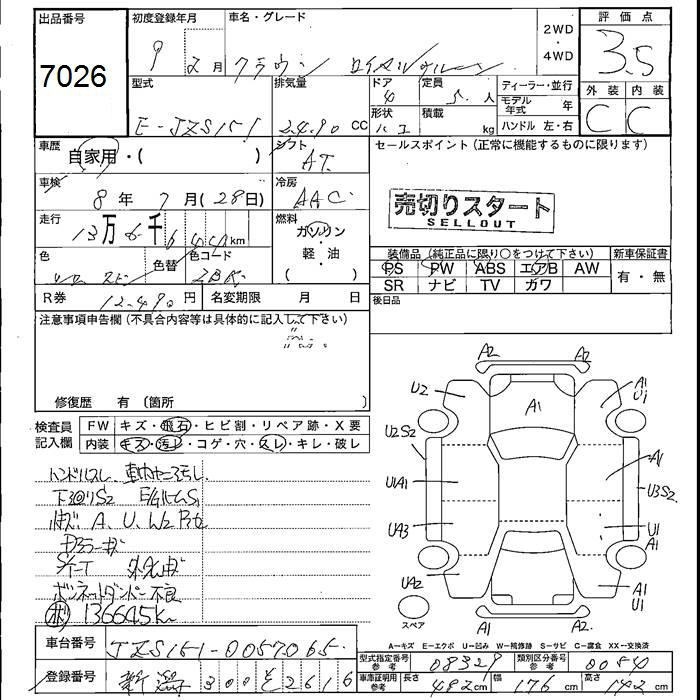 出品番号
7026
初度登録年月
9 2月
車名・グレード
クラウン
2WD
・
4WD
評価点
3.5
型式
E-JZS151
排気量
2490 CC
ドア
4
形状
ハコ
定員
5.人
積載
kg
ディーラー・並行
モデル年式 年
ハンドル 左・右
外装 内装
C C
車歴
自家用・( )
シフト
AT
セールスポイント(正常に機能するものに限ります)
売切りスタート
SELLOUT
車検
8年 7月(28日)
冷房
AAC
走行
13万6千6 km
燃料
ガソリン
・
軽・油
( )
色
色替
色コード
2BK
装備品(純正品に限り○をつけて下さい)
PS PW ABS エアB AW
SR ナビ TV ガワ
新車保証書
有・無
R券
12,490円
名変期限 月 日
後日品
注意事項申告欄(不具合内容等は具体的に記入して下さい)
修復歴 有〔箇所 〕
検査員
記入欄
FW キズ・飛石・ヒビ割・リペア跡・X要
内装 キズ・汚レ・コゲ・穴・スレ・キレ・破レ
ハンドルスレ 車内ヤニ汚レ
下廻りS2 E/GルームS1
A、U、W2
ボンネットダンパー不良
136645K
車台番号 JZS151-0057065
登録番号 300 2616
A2 A2
U2 A1 A1
U1
U2S2 A1
U1A1 U3S2
UA3 U1
A1
UA2 A1
U1
スペア
A1 A2
A-キズ E-エクボ U-凹み W-補修跡 S-サビ C-腐食 XX-交換済
型式指定番号 08329
類別区分番号 0040
車庫証明用参考 長さ 482cm 幅 176cm 高さ 142cm